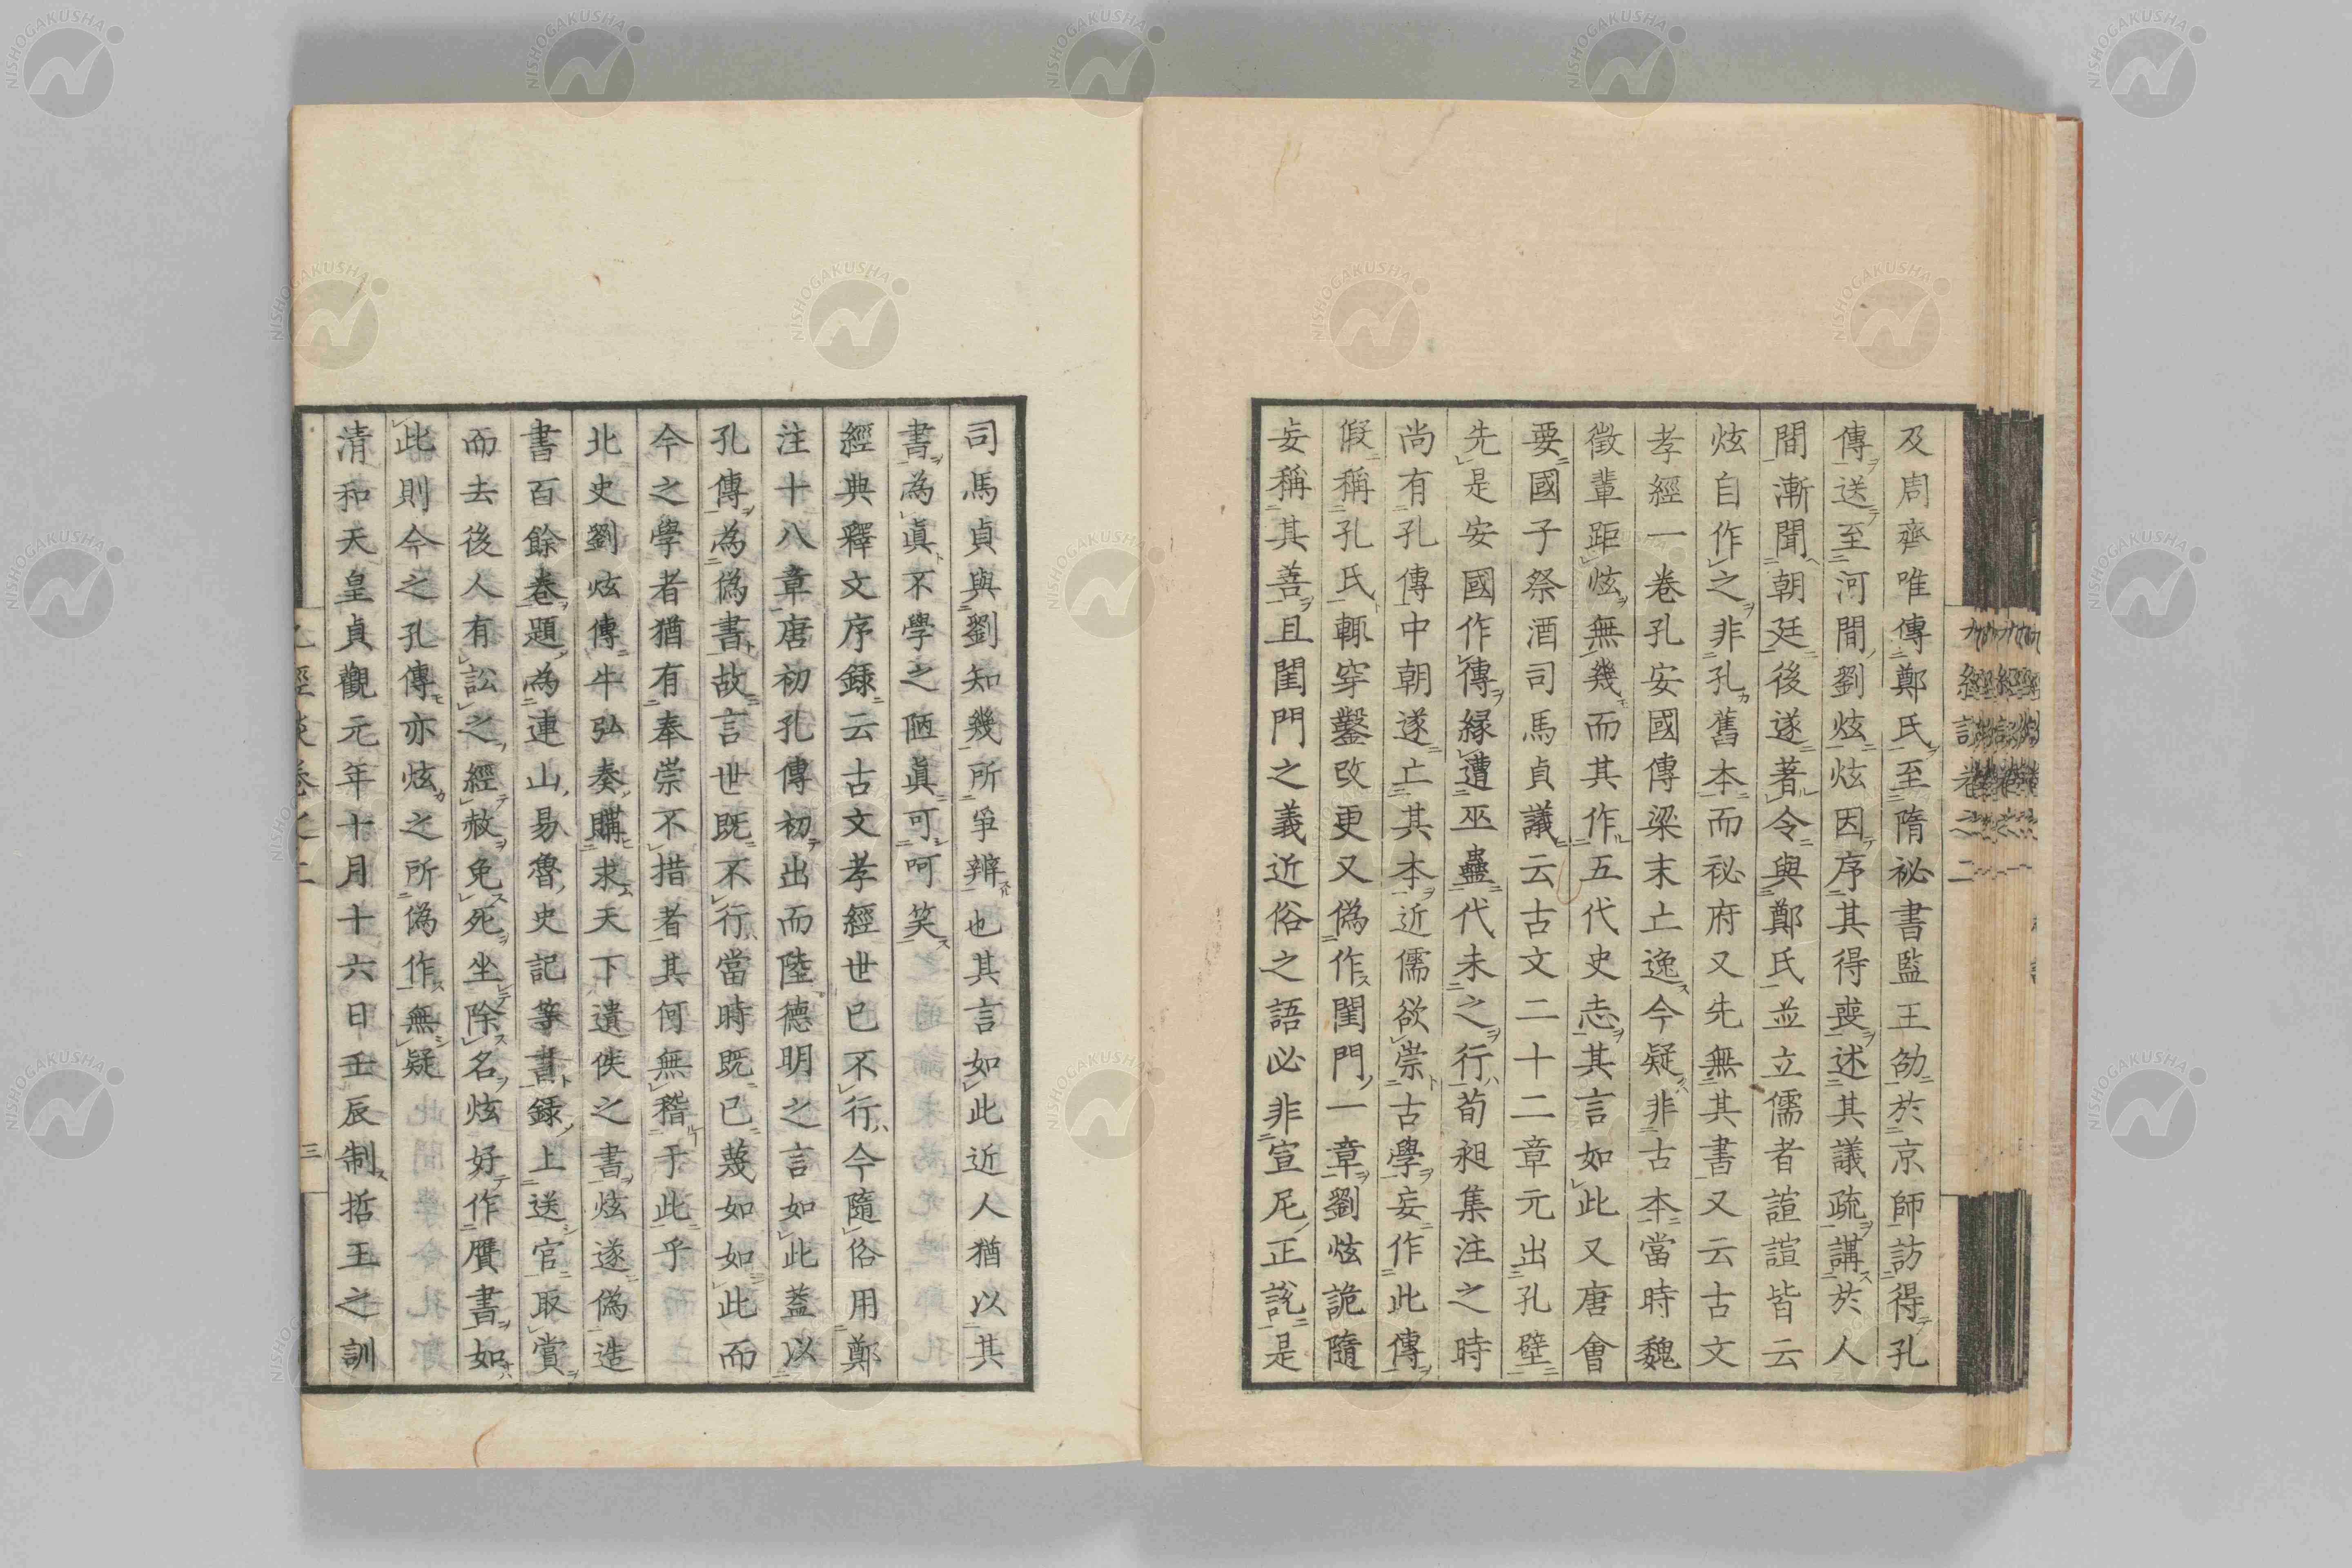 及周齊唯傳鄭氏至隋祕書監王劭於京師訪得孔
傳送至河間劉炫炫因序其得喪述其議疏講於人
間漸聞朝廷後遂著令與鄭氏並立儒者諠諠皆云
炫自作之非孔舊本而祕府又先無其書又云古文
孝經一卷孔安國傳梁末亡逸今疑非古本當時魏
徵輩距炫無幾而其作五代史志其言如此又唐會
要國子祭酒司馬貞議云古文二十二章元出孔壁
先是安國作傳緣遭巫蠱代未之行荀昶集注之時
尚有孔傳中朝遂亡其本近儒欲崇古學妄作此傳
假稱孔氏輙穿鑿改更又偽作閨門一章劉炫詭隨
妄稱其善且閨門之義近俗之語必非宣尼正說是
司馬貞與劉知幾所爭辨也其言如此近人猶以其
書為眞不學之陋眞可呵笑
經典釋文序録云古文孝經世已不行今隨俗用鄭
注十八章唐初孔傳初出而陸德明之言如此蓋以
孔傳為偽書故言世既不行當時既已蔑如如此而
今之學者猶有奉崇不措者其何無稽于此乎
北史劉炫傳牛弘奏購求天下遺佚之書炫遂偽造
書百餘卷題為連山易魯史記等書録上送官取賞
而去後人有訟之經赦免死坐除名炫好作贋書如
此則今之孔傳亦炫之所偽作無疑
清和天皇貞觀元年十月十六日壬辰制哲王之訓
九經談卷之二
三
NISHOGAKUSHA